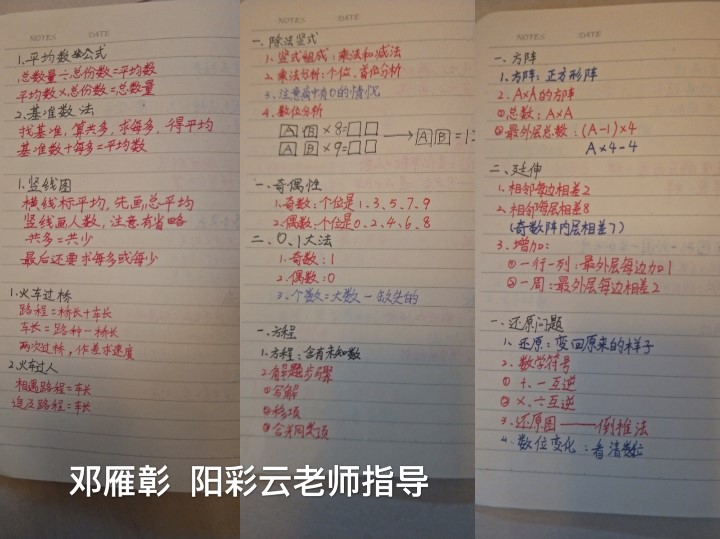 NOTES DATE
1.平均数 公式
总数量÷总份数=平均数
平均数×总份数=总数量
2.基准数法
找基准,算共多,求每多,得平均
基准数+每多=平均数
1.竖线图
横线标平均,先画总平均
竖线画人数,注意有省略
共多=共少
最后还要求每多或每少
1.火车过桥
路程=桥长+车长
车长=路程-桥长
两次过桥,作差求速度
2.火车过人
相遇路程=车长
追及路程=车长
NOTES DATE
一、除法竖式
1、竖式组成:乘法和减法
2、乘法分析:个位、首位分析
3、注意商中有0的情况
4、数位分析
A B ×8=□□ → A B =1
A B ×9=□□
一、奇偶性
1、奇数:个位是1、3、5、7、9
2、偶数:个位是0、2、4、6、8
二、0、1大法
1、奇数:1
2、偶数:0
3、个数=大数-
一、方程
1、方程:含有未知数
2.解题步骤
①分解
②移项
③合并同类项
NOTES DATE
一、方阵
1、方阵:正方形阵
2、A×A的方阵
①总数:A×A
②最外层总数:(A-1)×4
A×4-4
二、延伸
1、相邻每边相差2
2、相邻每层相差8
(奇数阵内层相差7)
3、增加:
①一行一列:最外层每边加1
②一周:最外层每边相差2
一、还原问题
1、还原:变回原来的样子
2、数学符号
①+、-互逆
②×、÷互逆
3、还原图——倒推法
4、数位变化:看清数位
邓雁彰 阳彩云老师指导